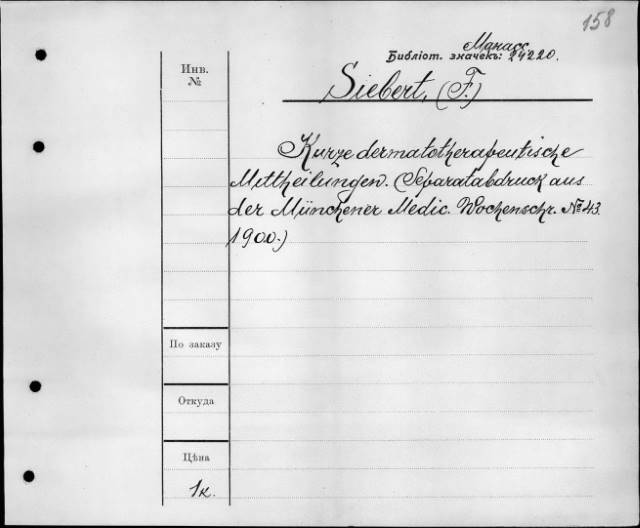 158
Манасс.
Библіот. значекъ: 24220.
Инв.
№
Siebert, (F.)
Kurze dermatotherapeutische
Mittheilungen. (Separatabdruck aus
der Münchener Medic. Wochenschr. № 43.
1900.)
По заказу
Откуда
Цѣна
1к.